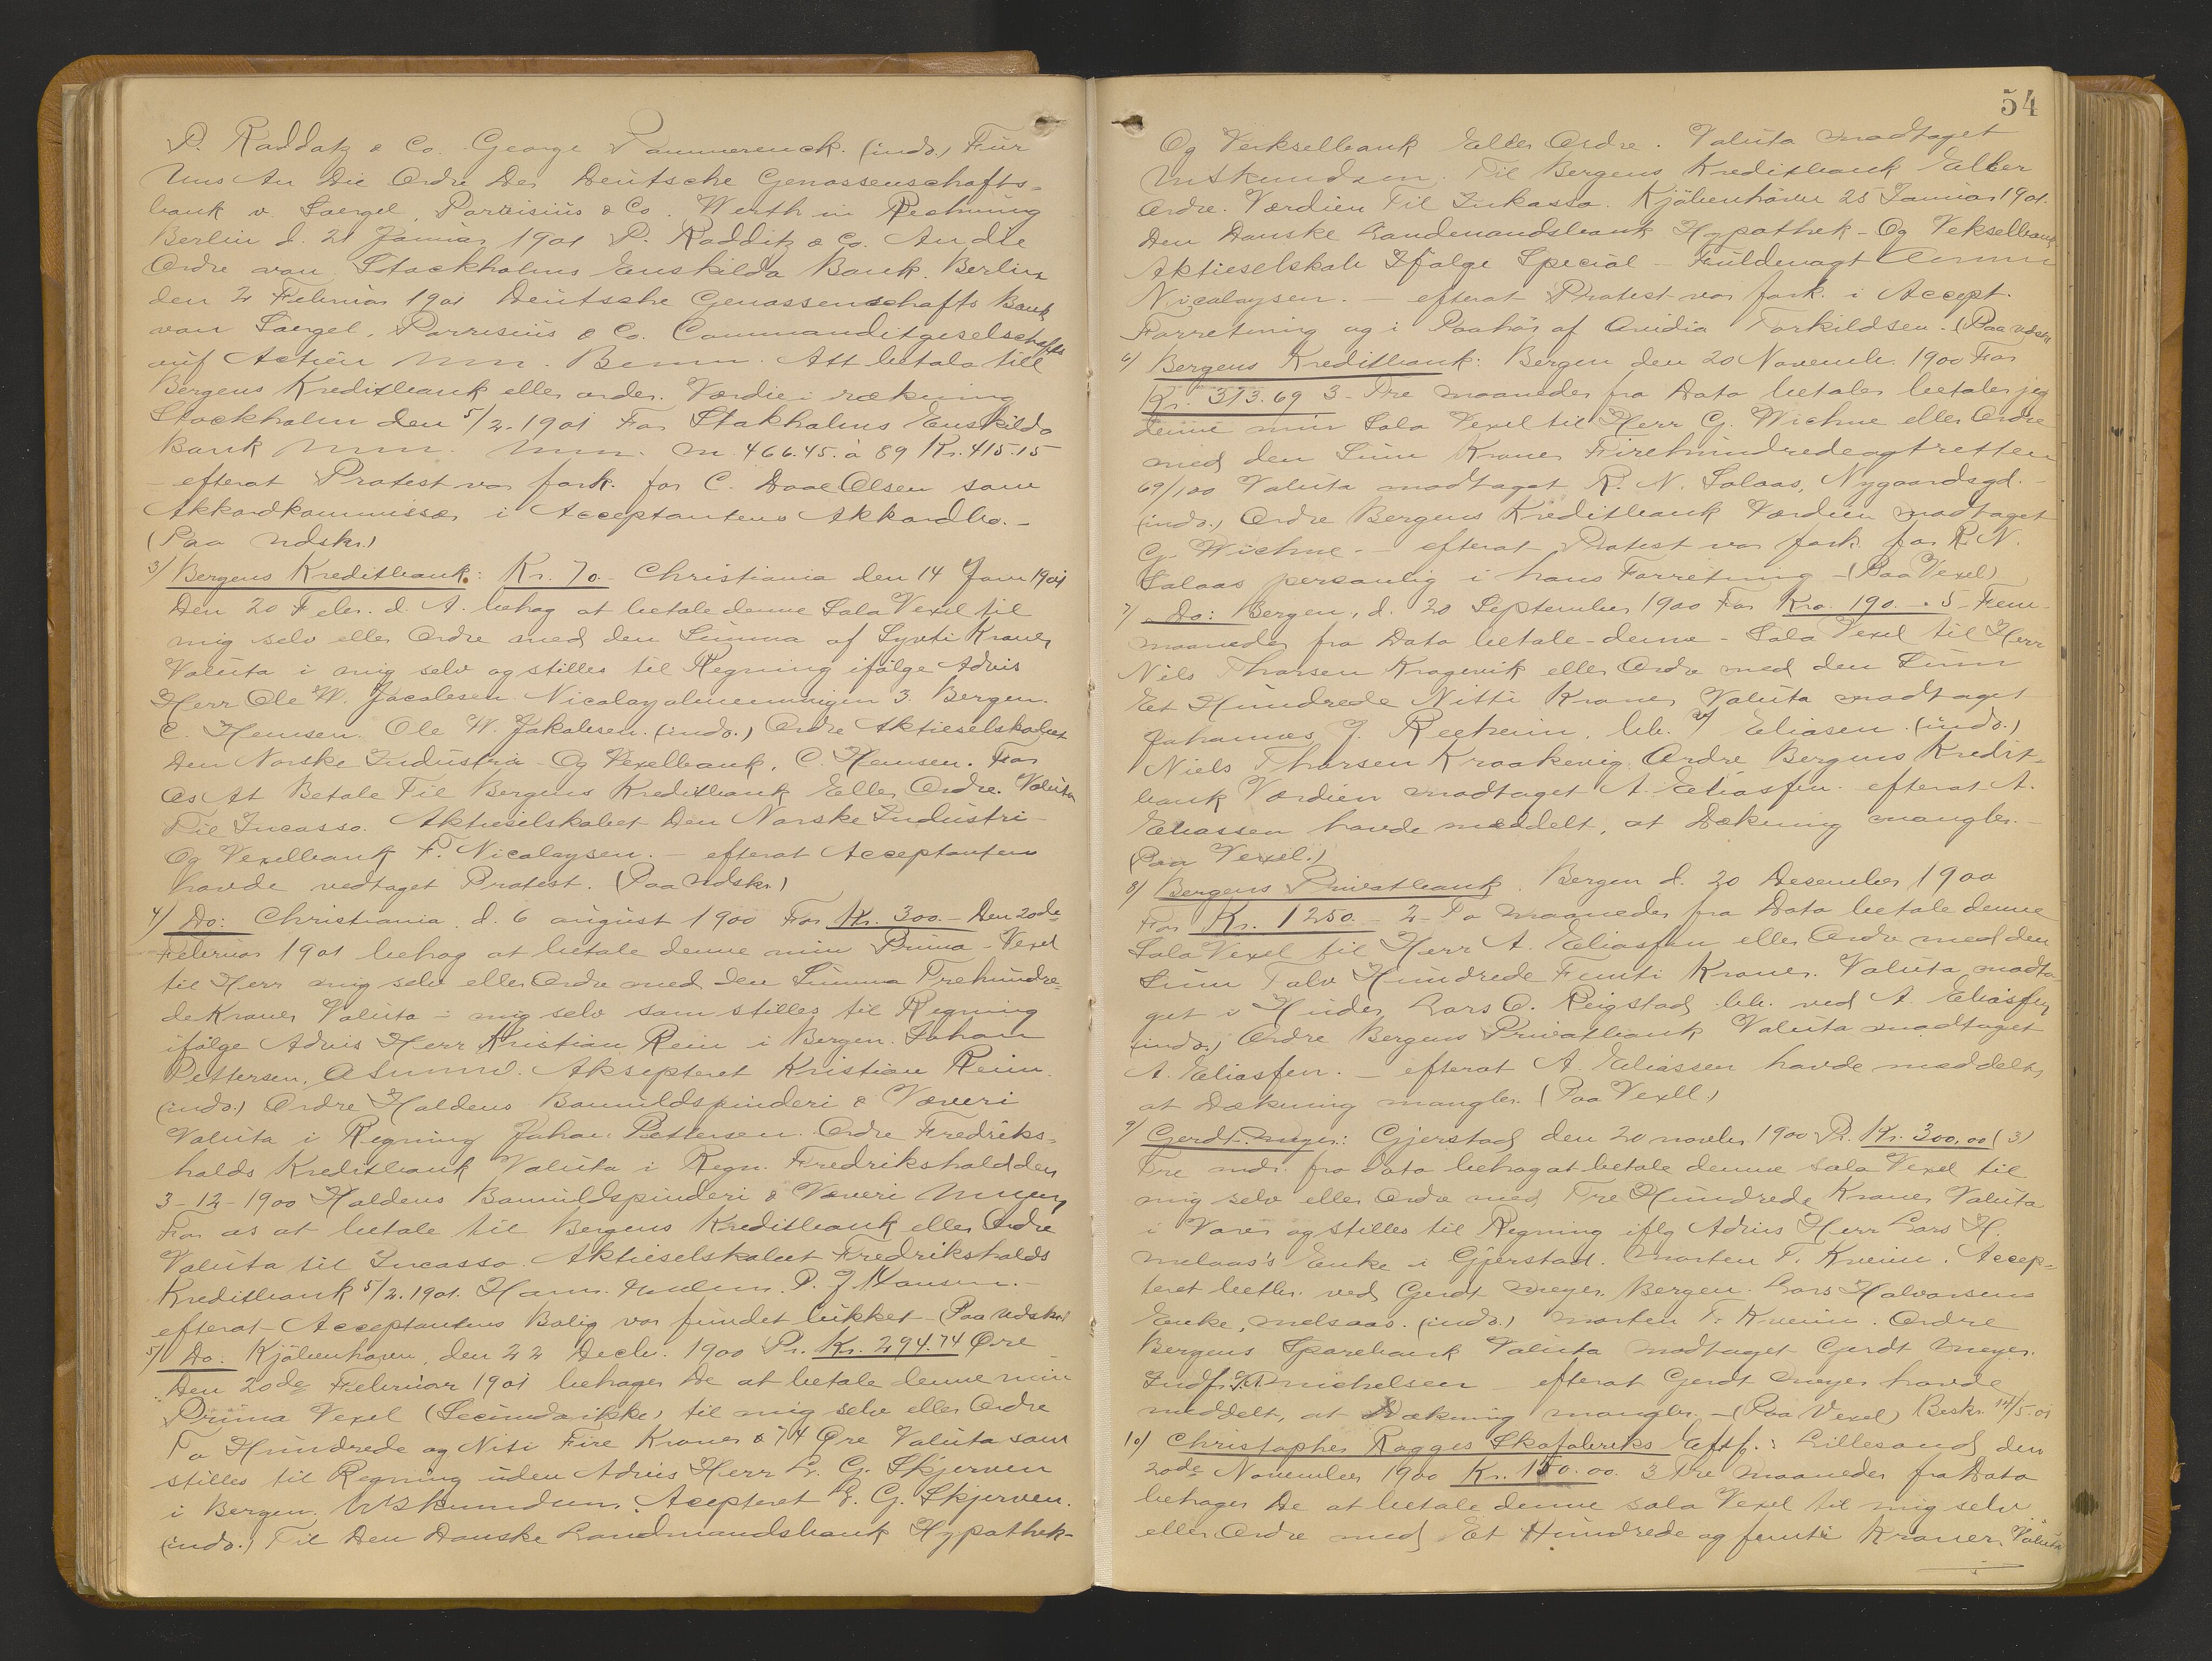 P. Raddatz & Co. George Pammerenck. (indo.) Für
Uns An Die Ordre Der Deutsche Genossenschafts-
bank v. Soergel, Parrisius & Co. Werth in Rechnung
Berlin d. 21 Januar 1901 P. Radditz & Co. An die
Ordre van Stockholms Enskilda Bank. Berlin
den 2 Februar 1901 Deutsche Genossenschafts Bank
von Soergel, Parrisius & Co. Commanditgeselschafts
auf Actien Att betala till
Bergens Kreditbank eller order. Værdie i rækning
Stockholm den 5/2. 1901 For Stokholms Enskilda
Bank M. 466.45. à 89 Kr. 415.15
- efterat Protest var fork. for C. Daae Olsen som
Akkordkommissær i Acceptantens Akkordbo. -
(Paa Udskr.)
3) Bergens Kreditbank: Kr. 70.- Christiania den 14 Janu 1901
Den 20 Febr. d. A. behag at betale denne Sola Vexel til
mig selv eller Ordre med den Summa af Sytti Kroner
Valuta i mig selv og stilles til Regning ifölge Advis
Herr Ole W. Jacobsen Nicolayalmenningen 3 Bergen.
C. Hemsen. Ole W. Jakobsen. (indo.) Ordre Aktieselskabet
Den Norske Industri- Og Vexelbank, C. Hemsen. For
Os At Betale Til Bergens Kreditbank Eller Ordre. Valuta
Til Incasso. Aktieselskabet Den Norske Industri-
Og Vexelbank F. Nicolaysen. - efterat Acceptanten
havde vedtaget Protest. (Paa Udskr.)
4) Do: Christiania d. 6 august 1900 For Kr. 300.- Den 20de
Februar 1901 behag at betale denne min Prima-Vexel
til Herr mig selv eller Ordre med den Summa Trehundre-
de Kroner Valuta i mig selv som stilles til Regning
ifölge Advis Herr Kristian Rein i Bergen. Johan
Pettersen, Aksepteret Kristian Rein.
(indo.) Ordre Haldens Bomuldspinderi & Væveri
Valuta i Regning Johan Pettersen. Ordre Fredriks-
halds Kreditbank Valuta i Regn. Fredrikshald den
3-12-1900 Haldens Bomuldspinderi & Væveri
For os at betale til Bergens Kreditbank eller Ordre
Valuta til Incasso. Aktieselskabet Fredrikshalds
Kreditbank 5/2. 1901. P. J. Hansen. -
efterat Acceptantens Bolig var fundet lukket - (Paa Udskr.)
5) Do: Kjöbenhavn, den 22 Decbr. 1900 Pr. Kr. 294.74 Øre -
Den 20de Februar 1901 behager De at betale denne min
Prima Vexel (Secunda ikke) til mig selv eller Ordre
To Hundrede og Niti Fire Kroner & 74 Øre Valuta som
stilles til Regning uden Advis Herr L. G. Skjerven
i Bergen. Acepteret L. G. Skjerven.
(indo.) Til Den Danske Landmandsbank Hypothek-
54
Og Vekselbank Eller Ordre. Valuta modtaget
Til Bergens Kreditbank Eller
Ordre. Værdien Til Inkasso. Kjöbenhavn 25 Januar 1901.
Den Danske Landmandsbank Hypothek- Og Vekselbank
Aktieselskab Ifölge Special-Fuldmagt
Nicolaysen. - efterat Protest var fork. i Accept.
Forretning og i Paahör af Ovidia Torkildsen. - (Paa Udskr.)
6) Bergens Kreditbank: Bergen den 20 Novemb. 1900 For
Kr. 313.69 3- Tre maaneder fra Dato betaler betaler jeg
denne min Sola Vexel til Herr G. Wichne eller Ordre
med den Sum Kroner Firehundredeogtretten
69/100 Valuta modtaget R. N. Solaas, Nygaardsgd. -
(indo.) Ordre Bergens Kreditbank Værdien modtaget
G. Wichne. - efterat Protest var fork. for R. N.
Solaas personlig i hans Forretning - (Paa Vexel)
7) Do: Bergen, d. 20 September 1900 For Kro. 190.- 5- Fem
maaneder fra Dato betale-denne- Sola Vexel til Herr
Nils Thorsen Kragevik eller Ordre med den Sum
Et Hundrede Nitti Kroner Valuta modtaget
Johannes J. Reeheim. btb. v/ Eliasen. (indo.)
Niels Thorsen Kraakevig. Ordre Bergens Kredit-
bank Værdien modtaget A. Eliasfen. efterat A.
Eliassen havde meddelt, at Dækning mangler. -
(Paa Vexel.)
8) Bergens Privatbank. Bergen d. 20 Desember 1900
For Kr. 1250.- 2- To maaneder fra Dato betale denne
Sola Vexel til Herr A. Eliasfen eller Ordre med den
Sum Tolv Hundrede Femti Kroner. Valuta modta-
get i Huder Lars O. Reigstad btb. ved A. Eliasfen
(indo.) Ordre Bergens Privatbank Valuta modtaget
A. Eliasfen. - efterat A. Eliassen havde meddelt,
at Dækning mangler. (Paa Vexll.)
9) Gerdt Meyer: Gjerstad den 20 novbr. 1900 Pr. Kr. 300,00 (3)
Tre mdr. fra Dato behag at betale denne sola Vexel til
mig selv eller Ordre med Tre Hundrede Kroner Valuta
i Varer og stilles til Regning iflg Advis Herr Lars H.
Melaas's Enke i Gjerstad. Morten T. Kveim. Accep-
teret betbr. ved Gerdt Meyer, Bergen. Lars Halvorsens
Enke, Melsaas. (indo.) Morten T. Kveim. Ordre
Bergens Sparebank Valuta modtaget Gerdt Meyer.
Indf. Michelsen - efterat Gerdt Meyer havde
meddelt, at Dækning mangler. - (Paa Vexel) Beskr. 14/5.01
10) Christopher Ragges Skofabriks Eftf.: Lillesand den
20de November 1900 Kr. 150.00. 3 Tre maaneder fra Dato
behager De at betale denne sola Vexel til mig selv
eller Ordre med Et Hundrede og femti Kroner. Valuta